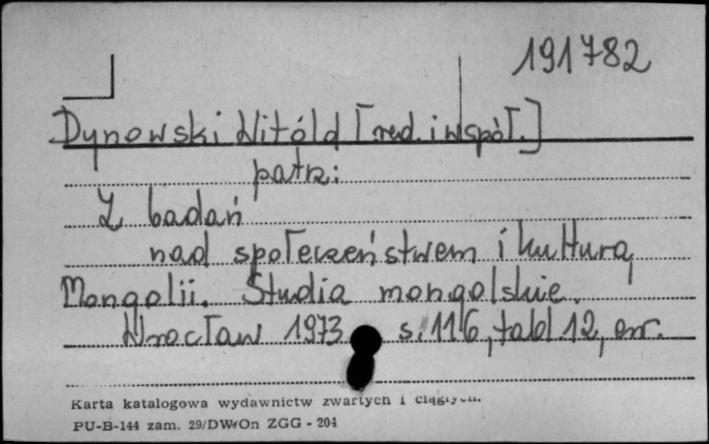 191782
Dynowski Witold [red. i współ.]
patrz:
Z badań
nad społeczeństwem i kulturą
Mongolii. Studia mongolskie.
Wrocław 1973 s. 116, tabl. 12, err.
Karta katalogowa wydawnictw zwartych i ciągłych.
PU-B-144 zam. 29/DWrOn ZGG - 204